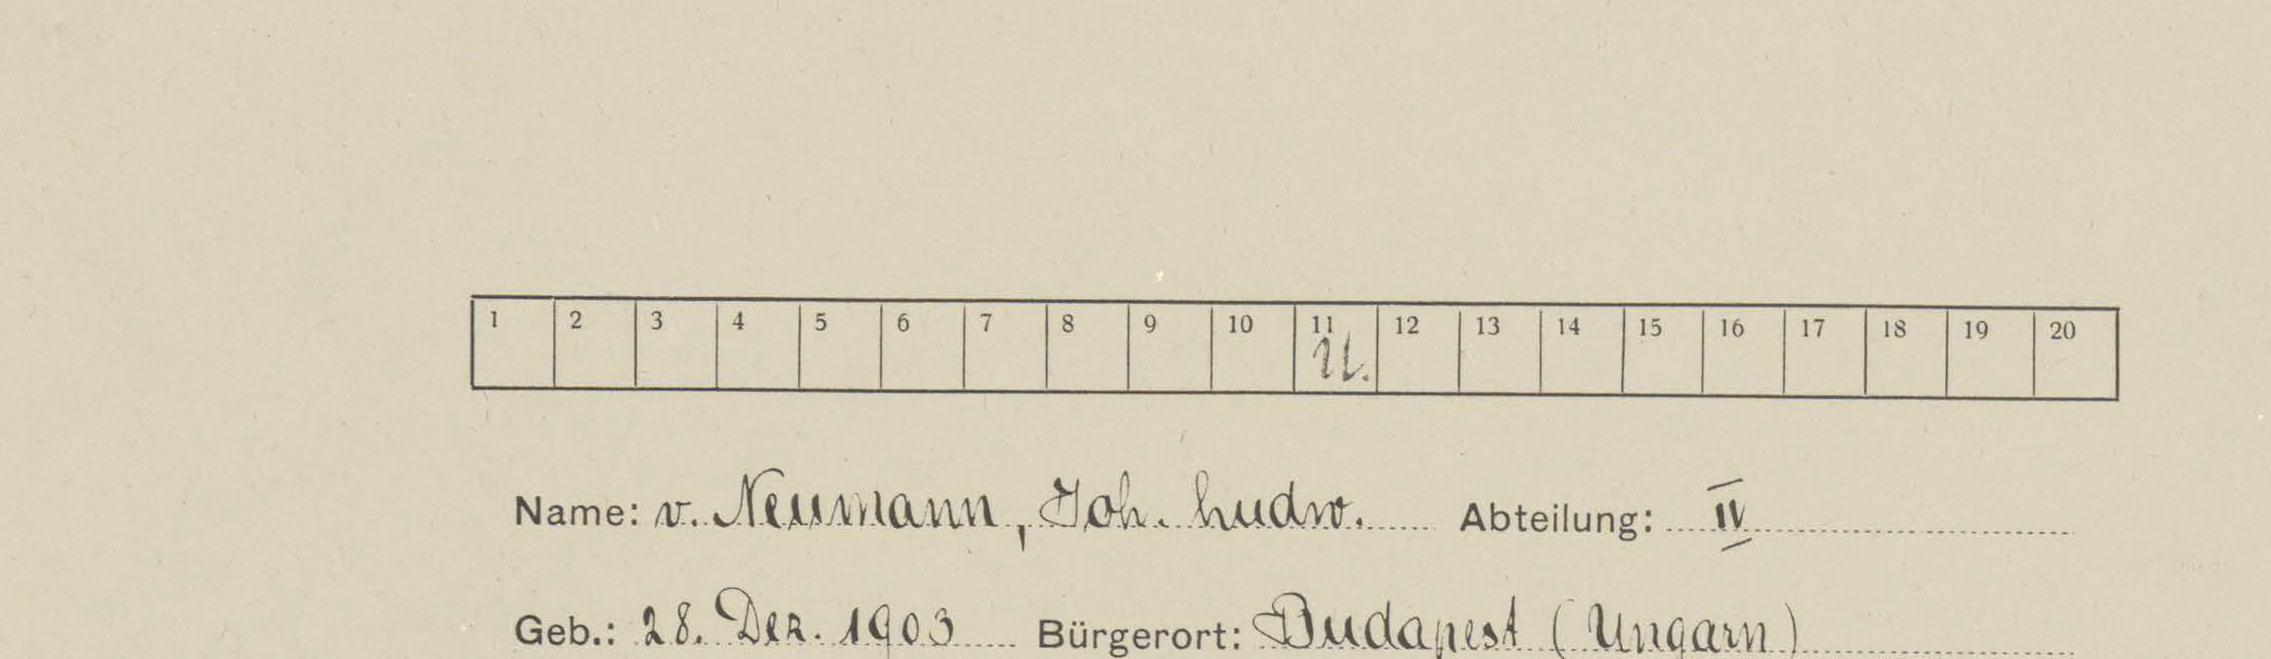 1 2 3 4 5 6 7 8 9 10 11 12 13 14 15 16 17 18 19 20
U.
Name: v. Neumann, Joh. Ludw. Abteilung: IV
Geb.: 28. Dez. 1903 Bürgerort: Budapest (Ungarn)